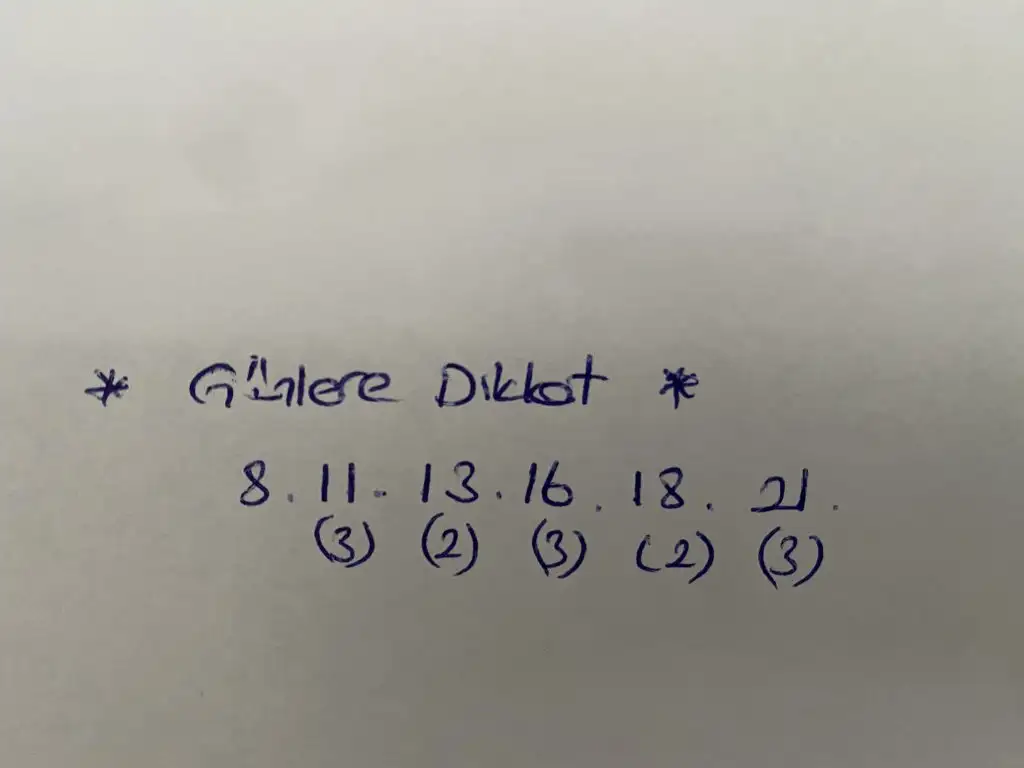 * Günlere Dikkat *
8. 11. 13. 16. 18. 21.
(3) (2) (3) (2) (3)